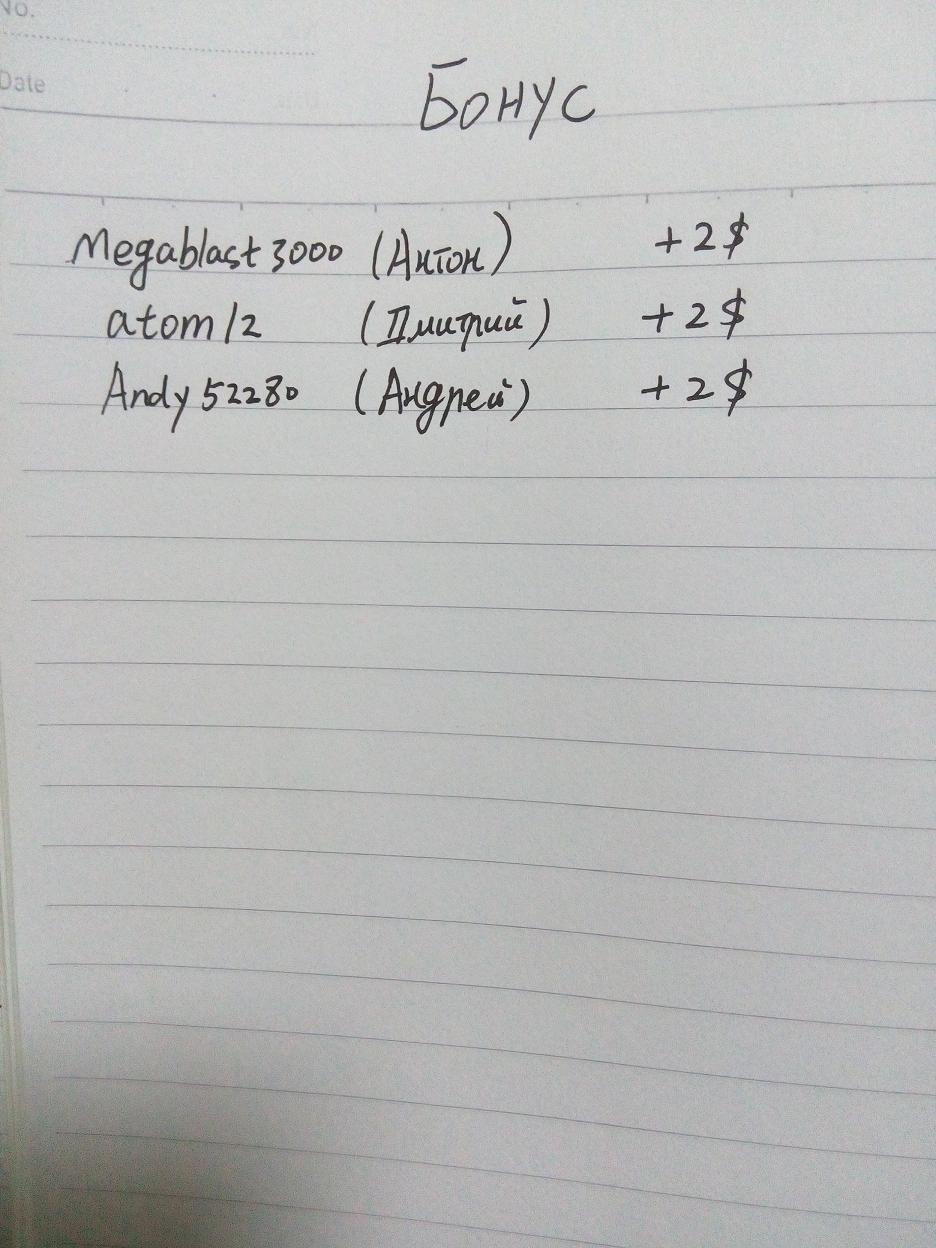 No.
Date
Бонус
Megablast3000 (Антон) +2$
atom12 (Дмитрий) +2$
Andy52280 (Андрей) +2$